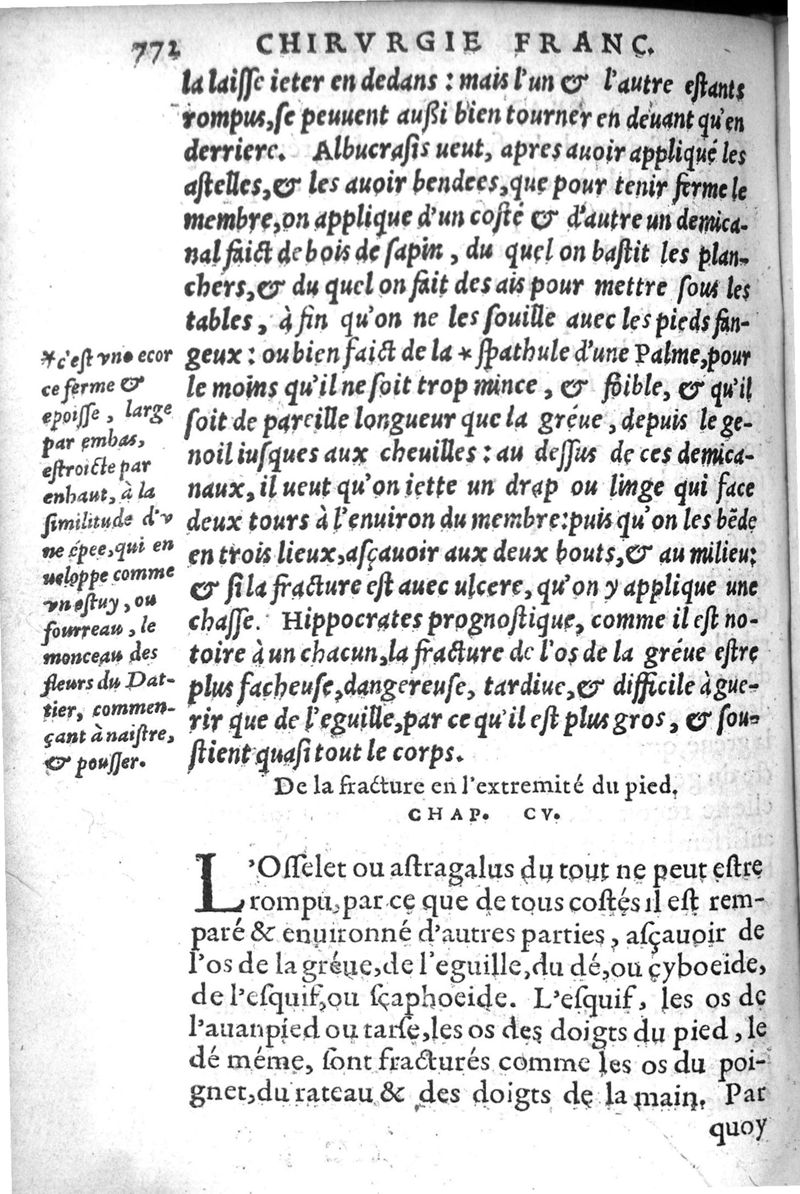 772 CHIRVRGIE FRANÇ.
la laisse ieter en dedans : mais l'un & l'autre estants
rompus, se peuuent außi bien tourner en deuant qu'en
derriere. Albucrasis ueut, apres auoir appliqué les
astelles, & les auoir bendees, que pour tenir ferme le
membre, on applique d'un costé & d'autre un demica-
nal faict de bois de sapin, du quel on bastit les plan-
chers, & du quel on fait des ais pour mettre sous les
tables, à fin qu'on ne les souille auec les pieds fan-
geux : ou bien faict de la * spathule d'une Palme, pour
le moins qu'il ne soit trop mince, & foible, & qu'il
soit de pareille longueur que la gréue, depuis le ge-
noil iusques aux cheuilles : au dessus de ces demica-
naux, il ueut qu'on iette un drap ou linge qui face
deux tours à l'enuiron du membre: puis qu'on les bẽde
en trois lieux, asçauoir aux deux bouts, & au milieu:
& si la fracture est auec ulcere, qu'on y applique une
chasse. Hippocrates prognostique, comme il est no-
toire à un chacun, la fracture de l'os de la gréue estre
plus facheuse, dangereuse, tardiue, & difficile à gue-
rir que de l'eguille, par ce qu'il est plus gros, & sou-
stient quasi tout le corps.
*c'est vne ecor
ce ferme &
epoisse, large
par embas,
estroicte par
enhaut, à la
similitude d'v
ne épee, qui en
ueloppe comme
vn estuy, ou
fourreau, le
monceau des
fleurs du Dat-
tier, commen-
çant à naistre,
& pousser.
De la fracture en l'extremité du pied.
CHAP. CV.
L'Osselet ou astragalus du tout ne peut estre
rompu, par ce que de tous costés il est rem-
paré & enuironné d'autres parties, asçauoir de
l'os de la gréue, de l'eguille, du dé, ou cyboeide,
de l'esquif, ou scaphoeide. L'esquif, les os de
l'auanpied ou tarse, les os des doigts du pied, le
dé méme, sont fracturés comme les os du poi-
gnet, du rateau & des doigts de la main. Par
quoy